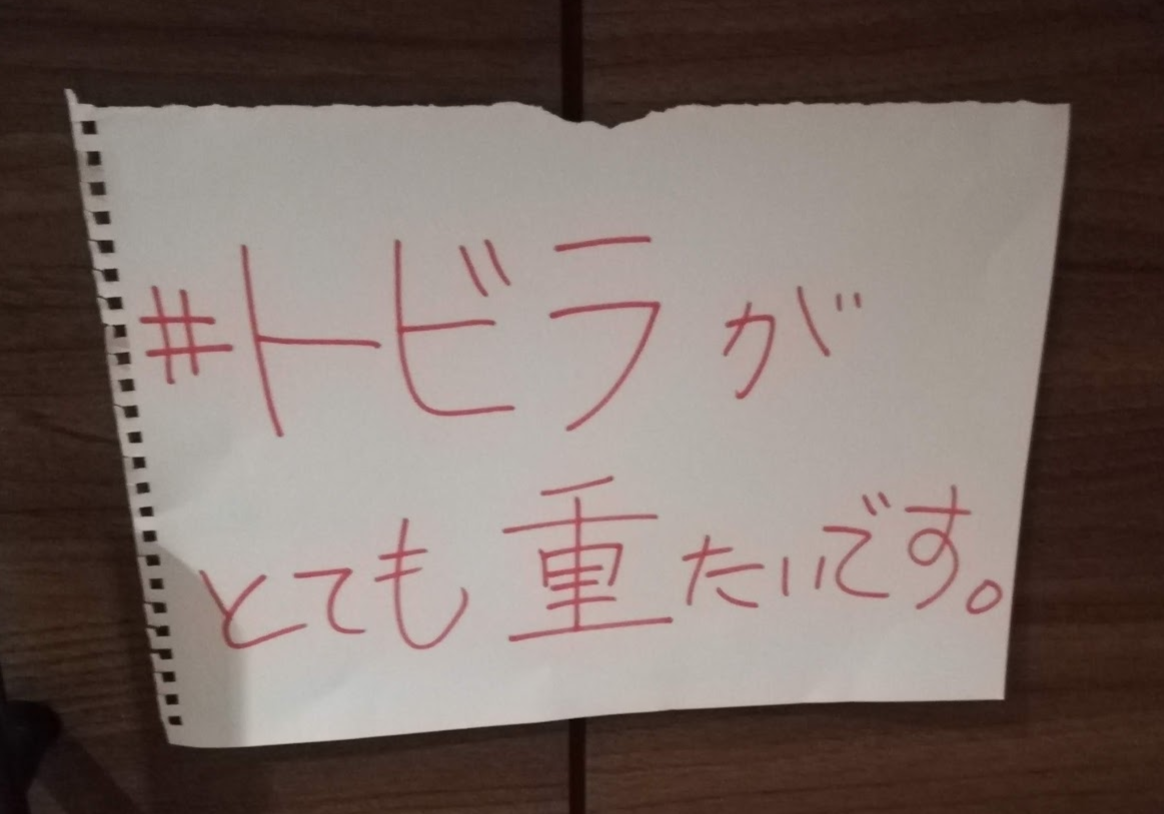 #トビラが
とても重たいです。